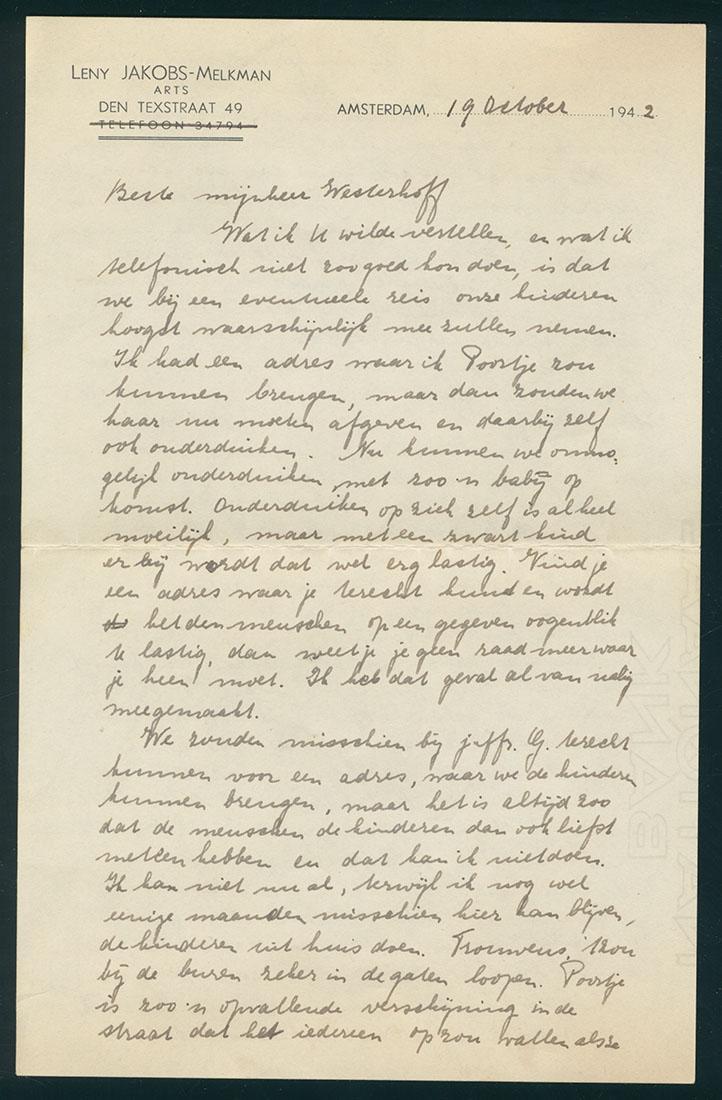 LENY JAKOBS-MELKMAN
ARTS
DEN TEXSTRAAT 49
TELEFOON 34794
AMSTERDAM, 19 October 1942
Beste mijnheer Westerhoff
Wat ik U wilde vertellen, en wat ik
telefonisch niet zoo goed kon doen, is dat
we bij een eventueele reis onze kinderen
hoogst waarschijnlijk mee zullen nemen.
Ik had een adres waar ik Poortje zou
kunnen brengen, maar dan zouden we
haar nu moeten afgeven en daarbij zelf
ook onderduiken. Nu kunnen we onmo-
gelijk onderduiken, met zoo'n baby op
komst. Onderduiken op zich zelf is al heel
moeilijk, maar met een zwart kind
er bij wordt dat wel erg lastig. Vind je
een adres waar je terecht kunt en wordt
het den menschen op een gegeven oogenblik
te lastig, dan weet je je geen raad meer waar
je heen moet. Ik heb dat geval al van nabij
meegemaakt.
We zouden misschien bij juffr. G. terecht
kunnen voor een adres, waar we de kinderen
kunnen brengen, maar het is altijd zoo
dat de menschen de kinderen dan ook liefst
meteen hebben en dat kan ik niet doen.
Ik kan niet nu al, terwijl ik nog wel
eenige maanden misschien hier kan blijven,
de kinderen uit huis doen. Trouwens, 't zou
bij de buren zeker in de gaten loopen. Poortje
is zoo'n opvallende verschijning in de
straat dat het iedereen op zou vallen als ze